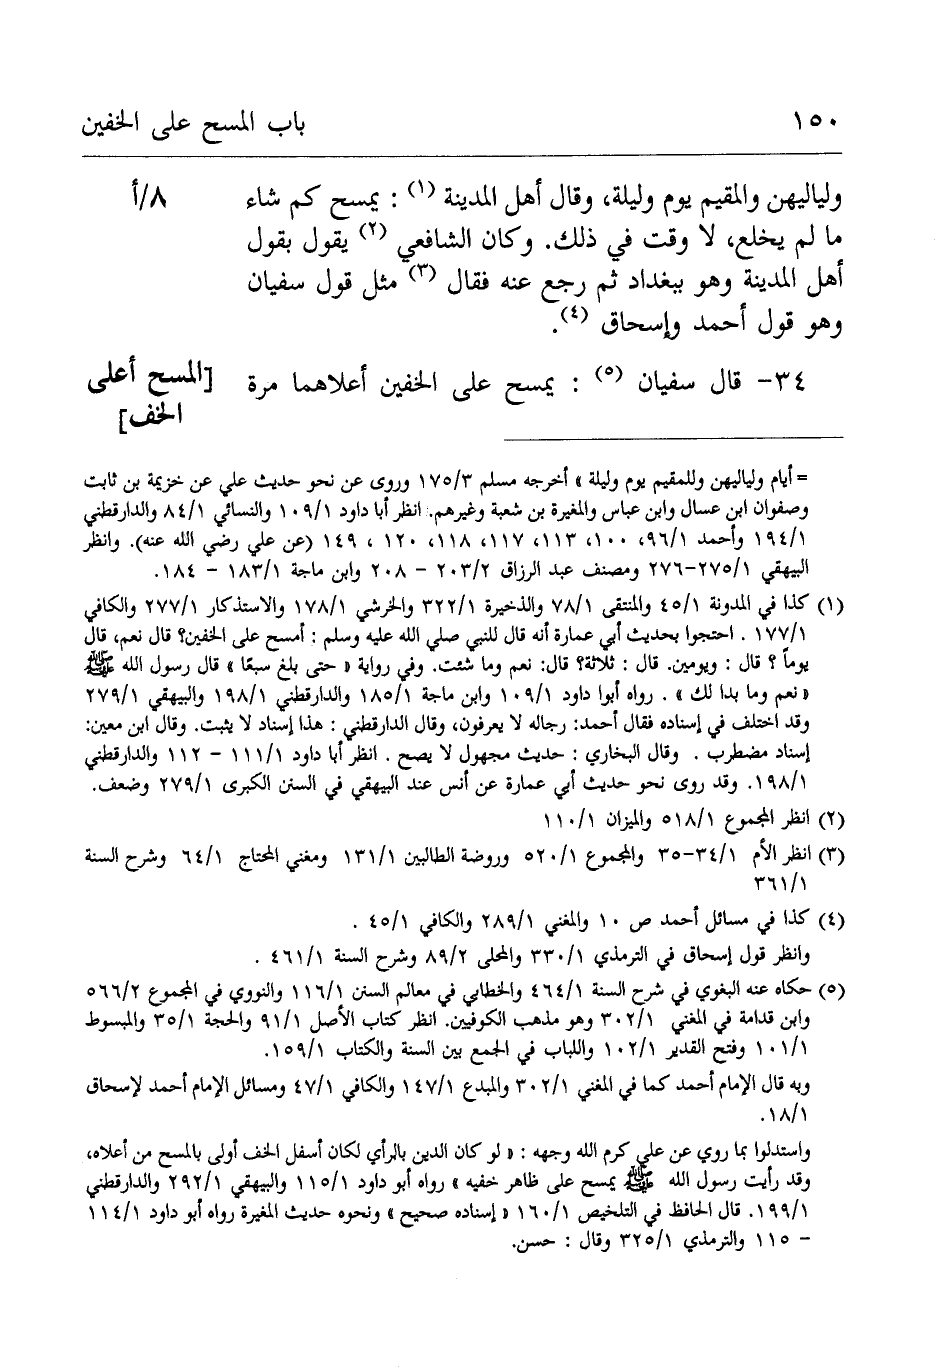 ١٥٠ باب المسح على الخفين
ولياليهن والمقيم يوم وليلة، وقال أهل المدينة (١) : يمسح كم شاء ٨/أ
ما لم يخلع، لا وقت في ذلك. وكان الشافعي (٢) يقول بقول
أهل المدينة وهو ببغداد ثم رجع عنه فقال (٣) مثل قول سفيان
وهو قول أحمد وإسحاق (٤).
٣٤- قال سفيان (٥) : يمسح على الخفين أعلاهما مرة [المسح أعلى
الخف]
= أيام ولياليهن وللمقيم يوم وليلة » أخرجه مسلم ١٧٥/٣ وروى عن نحو حديث علي عن خزيمة بن ثابت
وصفوان ابن عسال وابن عباس والمغيرة بن شعبة وغيرهم. انظر أبا داود ١٠٩/١ والنسائي ٨٤/١ والدارقطني
١٩٤/١ وأحمد ٩٦/١، ١٠٠، ١١٣، ١١٧، ١١٨، ١٢٠ ، ١٤٩ (عن علي رضي الله عنه). وانظر
البيهقي ٢٧٥/١-٢٧٦ ومصنف عبد الرزاق ٢٠٣/٢ – ٢٠٨ وابن ماجة ١٨٣/١ – ١٨٤.
(١) كذا في المدونة ٤٥/١ والمنتقى ٧٨/١ والذخيرة ٣٢٢/١ والخرشي ١٧٨/١ والاستذكار ٢٧٧/١ والكافي
١٧٧/١ . احتجوا بحديث أبي عمارة أنه قال للنبي صلي الله عليه وسلم : أمسح على الخفين؟ قال نعم، قال
يوماً ؟ قال : ويومين. قال : ثلاثة؟ قال: نعم وما شئت. وفي رواية « حتى بلغ سبعًا » قال رسول الله ﷺ
« نعم وما بدا لك » . رواه أبوا داود ١٠٩/١ وابن ماجة ١٨٥/١ والدارقطني ١٩٨/١ والبيهقي ٢٧٩/١
وقد اختلف في إسناده فقال أحمد: رجاله لا يعرفون، وقال الدارقطني : هذا إسناد لا يثبت. وقال ابن معين:
إسناد مضطرب . وقال البخاري : حديث مجهول لا يصح . انظر أبا داود ١١١/١ – ١١٢ والدارقطني
١٩٨/١. وقد روى نحو حديث أبي عمارة عن أنس عند البيهقي في السنن الكبرى ٢٧٩/١ وضعف.
(٢) انظر المجموع ٥١٨/١ والميزان ١١٠/١
(٣) انظر الأم ٣٤/١-٣٥ والمجموع ٥٢٠/١ وروضة الطالبين ١٣١/١ ومغني المحتاج ٦٤/١ وشرح السنة
٣٦١/١
(٤) كذا في مسائل أحمد ص ١٠ والمغني ٢٨٩/١ والكافي ٤٥/١ .
وانظر قول إسحاق في الترمذي ٣٣٠/١ والمحلى ٨٩/٢ وشرح السنة ٤٦١/١ .
(٥) حكاه عنه البغوي في شرح السنة ٤٦٤/١ والخطابي في معالم السنن ١١٦/١ والنووي في المجموع ٥٦٦/٢
وابن قدامة في المغني ٣٠٢/١ وهو مذهب الكوفيين. انظر كتاب الأصل ٩١/١ والحجة ٣٥/١ والمبسوط
١٠١/١ وفتح القدير ١٠٢/١ واللباب في الجمع بين السنة والكتاب ١٥٩/١.
وبه قال الإمام أحمد كما في المغني ٣٠٢/١ والمبدع ١٤٧/١ والكافي ٤٧/١ ومسائل الإمام أحمد لإسحاق
١٨/١.
واستدلوا بما روي عن علي كرم الله وجهه : « لو كان الدين بالرأي لكان أسفل الخف أولى بالمسح من أعلاه،
وقد رأيت رسول الله ﷺ يمسح على ظاهر خفيه » رواه أبو داود ١١٥/١ والبيهقي ٢٩٢/١ والدارقطني
١٩٩/١. قال الحافظ في التلخيص ١٦٠/١ « إسناده صحيح » ونحوه حديث المغيرة رواه أبو داود ١١٤/١
– ١١٥ والترمذي ٣٢٥/١ وقال : حسن.